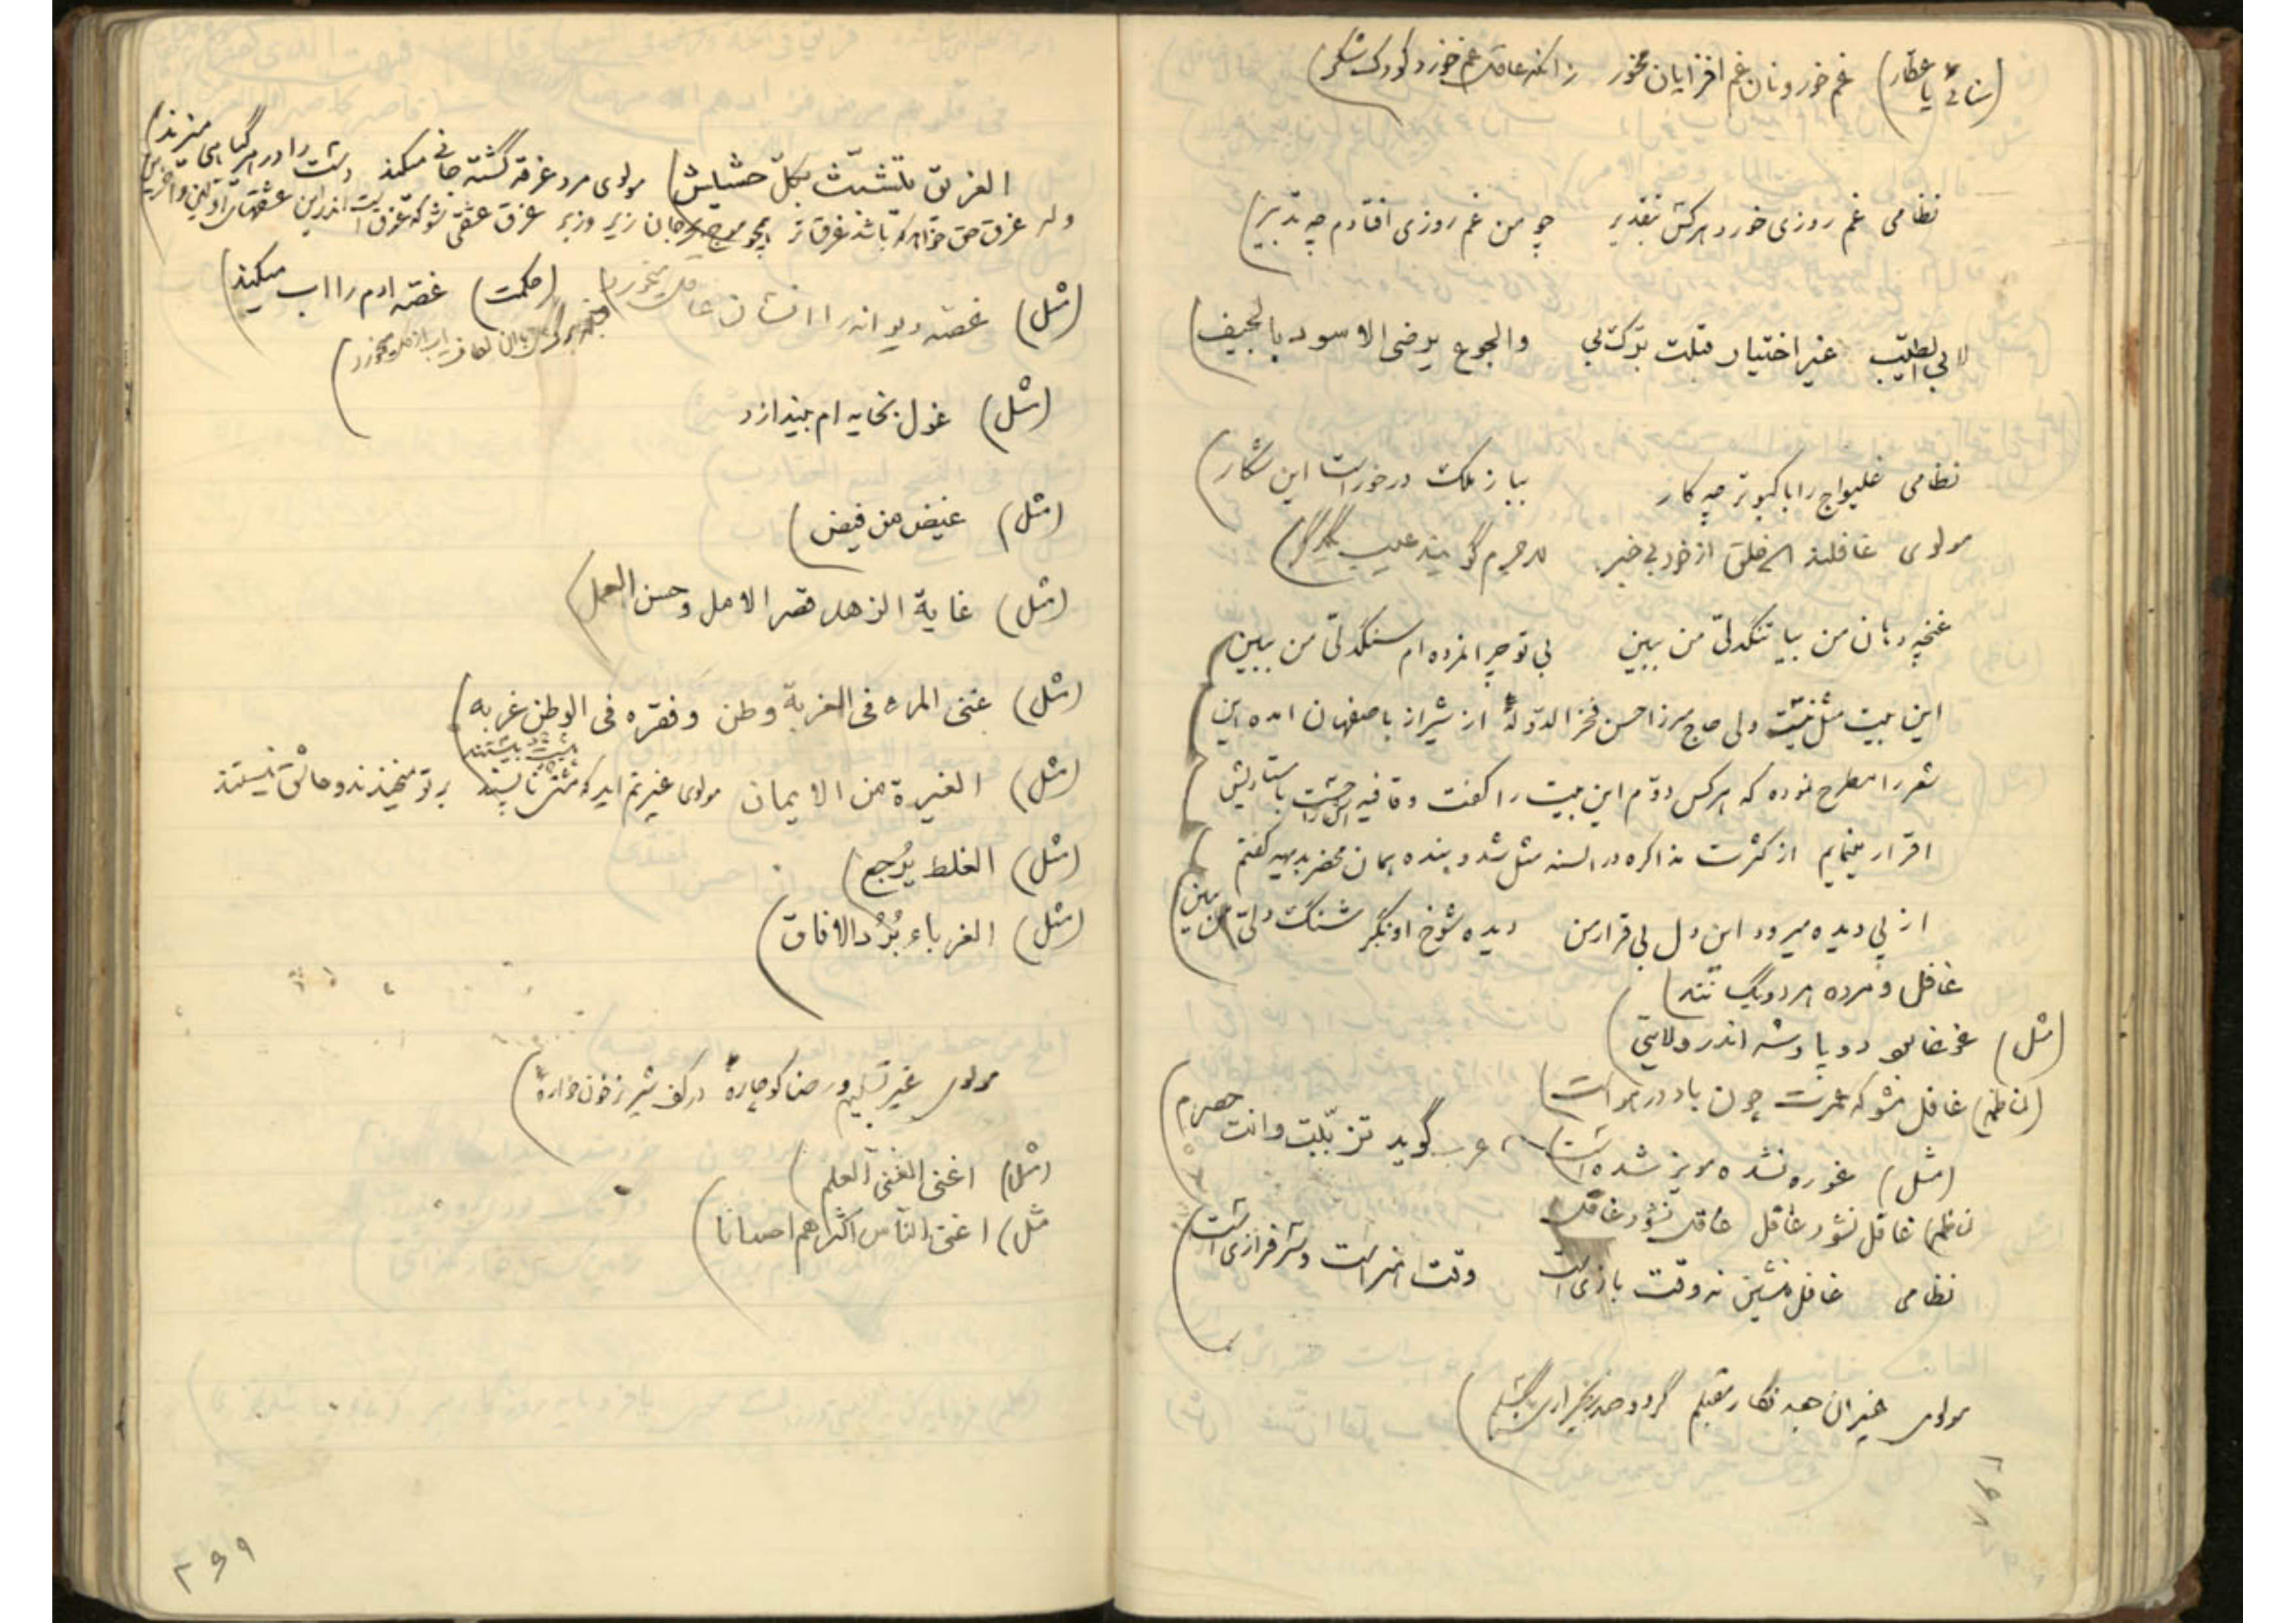 (سنائی یا عطار) غم خور و نان غم افزایان مخور زانکه عاقل غم خورد کودک شکر)
نظامی غم روزی خورد هرکس بتقدیر چو من غم روزی افتادم چه تدبیر)
لابی الطیّب غیر اختیار قبلت برّک بی والجوع یرضی الاسود بالجیف)
نظامی غلیواج را با کبوتر چه کار بباز ملک درخورست این شکار)
مولوی غافلند این خلق از خود بی خبر لاجرم گویند عیب یکدگر)
غنچه دهان من بیا تنگدلیّ من ببین بی تو چرا نمرده ام سنگدلیّ من ببین)
این بیت مثل نیست ولی حاج میرزا حسن فخرالدوله از شیراز باصفهان امده این
شعر را مطرح نموده که هرکس دوّم این بیت را گفت و قافیه اش راست باستادیش
اقرار مینمایم از کثرت مذاکره در السنه مثل شد و بنده همان محضر بدیهه گفتم
از پی دیده میرود این دل بی قرار من دیده شوخ او نگر شنگ دلیّ من ببین)
غافل و مرده هر دو یک تنند)
(مثل) غوغا بود دو پادشه اندر ولایتی)
(ناظم) غافل مشو که عمرت چون باد در هواست)
(مثل) غوره نشده مویز شده است) عرب گوید تزبّبت وانت حصرم)
ناظم) غافل نشود عاقل عاقل نشود غافل
نظامی غافل منشین نه وقت بازی است وقت هنر است و سرفرازی است)
مولوی غیر ان جعد نگار مقبلم گر دو صد زنجیر اری بگسلم)
۲۹۸
الغریق یتشبّث بکلّ حشیش) مولوی مرد غرقه گشته جانی میکند دست را در هر گیاهی میزند)
وله غرق حق خواهد که باشد غرق تر همچو موج بحر جان زیر و زبر غرق عشقی شو که غرق است اندرین عشقهای اوّلین و اخرین)
(مثل) غصه دیوانه را انسان عاقل میخورد) (حکمت) غصه ادم را اب میکند)
(مثل) غول بخایه ام بیندازد
(مثل) غیض من فیض)
(مثل) غایة الزهد قصر الامل وحسن العمل)
(مثل) غنی المرء فی الغربة وطن وفقره فی الوطن غربه)
(مثل) الغیرة من الایمان مولوی غیرتم اید که پیشت بیستند بر تو میخندند و عاشق نیستند
(مثل) الغلط یُرجع)
(مثل) الغرباء بُرُد الافاق)
مولوی غیر تسلیم و رضا کو چارهٔ در کف شیر نر خون خوارهٔ)
(مثل) اغنی الغنی العلم)
مثل) اغنی النّاس اکثرهم احسانا)
۲۹۹